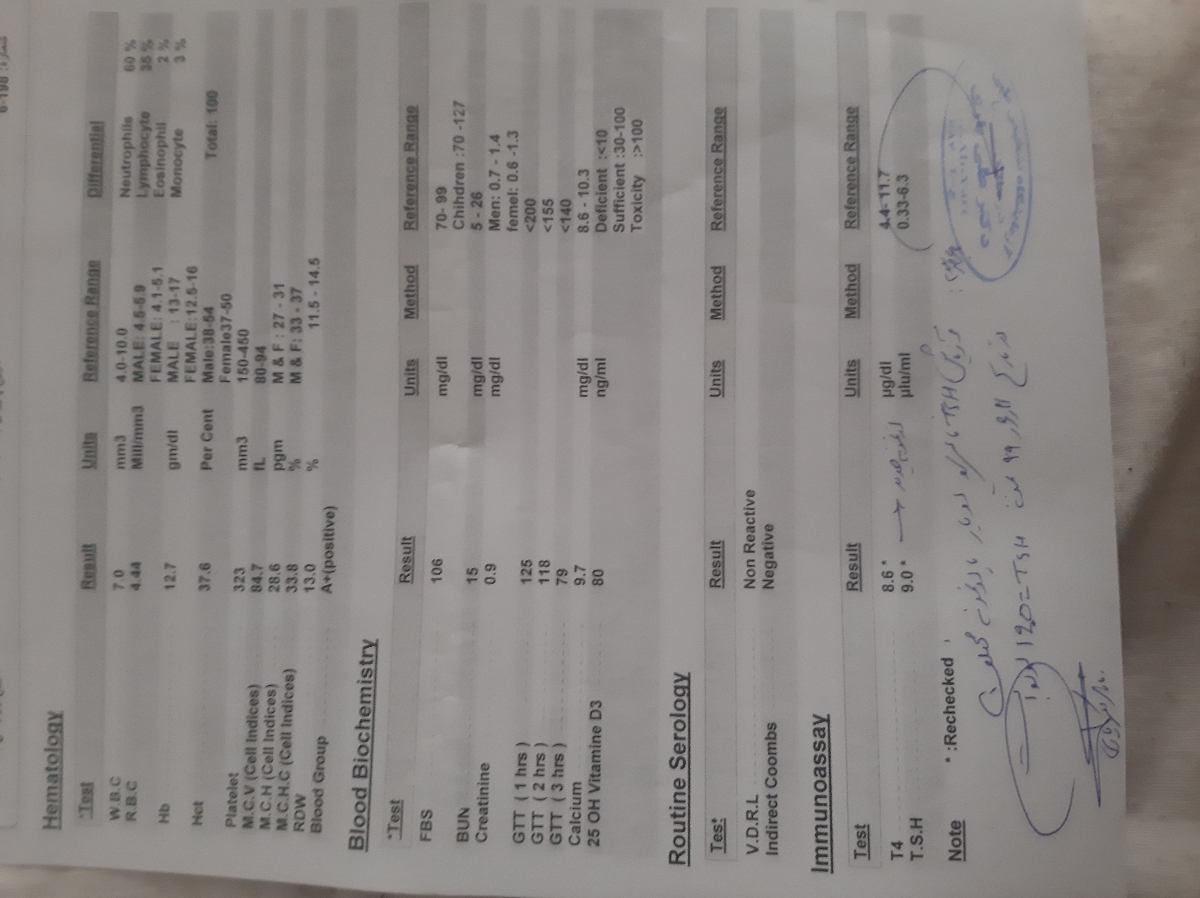 Hematology
*Test Result Units Reference Range Differential
W.B.C 7.0 mm3 4.0-10.0 Neutrophils 60 %
R.B.C 4.44 Mill/mm3 MALE: 4.5-5.9 Lymphocyte 35 %
FEMALE: 4.1-5.1 Eosinophil 2 %
Hb 12.7 gm/dl MALE : 13-17 Monocyte 3 %
FEMALE:12.5-16
Hct 37.6 Per Cent Male:38-54 Total: 100
Female37-50
Platelet 323 mm3 150-450
M.C.V (Cell Indices) 84.7 fL 80-94
M.C.H (Cell Indices) 28.6 pgm M & F : 27 - 31
M.C.H.C (Cell Indices) 33.8 % M & F: 33 - 37
RDW 13.0 % 11.5 - 14.5
Blood Group A+(positive)
Blood Biochemistry
*Test Result Units Method Reference Range
FBS 106 mg/dl 70- 99
Chihdren :70 -127
BUN 15 mg/dl 5 - 26
Creatinine 0.9 mg/dl Men: 0.7 - 1.4
femel: 0.6 -1.3
GTT ( 1 hrs ) 125 <200
GTT ( 2 hrs ) 118 <155
GTT ( 3 hrs ) 79 <140
Calcium 9.7 mg/dl 8.6 - 10.3
25 OH Vitamine D3 80 ng/ml Deficient :<10
Sufficient :30-100
Toxicity :>100
Routine Serology
Test Result Units Method Reference Range
V.D.R.L Non Reactive
Indirect Coombs Negative
Immunoassay
Test Result Units Method Reference Range
T4 8.6 * µg/dl 4.4- 11.7
T.S.H 9.0 * µIu/ml 0.33-6.3
Note * :Rechecked
TSH
TSH =